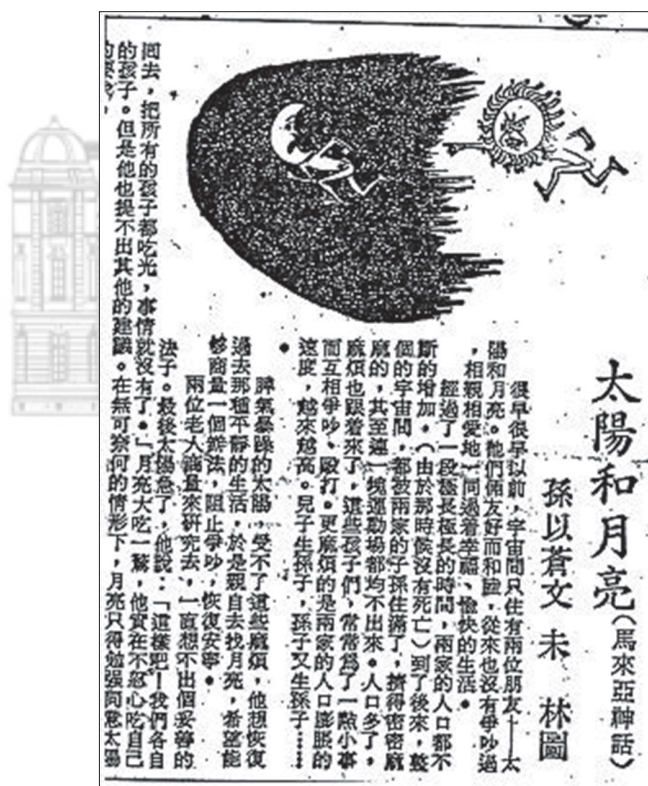 太陽和月亮(馬來亞神話)
孫以蒼文 未 林圖
很早很早以前，宇宙間只住有兩位朋友——太
陽和月亮。他們倆友好而和睦，從來也沒有爭吵過
，相親相愛地一同過着幸福、愉快的生活。
經過了一段極長極長的時間，兩家的人口都不
斷的增加，（由於那時候沒有死亡）到了後來，整
個的宇宙間，都被兩家的子孫住滿了，擠得密密麻
麻的，甚至連一塊運動場都均不出來。人口多了，
麻煩也跟着來了，這些孩子們，常常爲了一點小事
而互相爭吵、毆打。更麻煩的是兩家的人口膨脹的
速度，越來越高。兒子生孫子，孫子又生孫子……
。
脾氣暴躁的太陽，受不了這些麻煩，他想恢復
過去那種平靜的生活，於是親自去找月亮，希望能
够商量一個辦法，阻止爭吵，恢復安寧。
兩位老人商量來研究去，一直想不出個妥善的
法子。最後太陽急了，他說：「這樣吧！我們各自
回去，把所有的孩子都吃光，事情就沒有了。「月亮大吃一驚，他實在不忍心吃自己
的孩子。但是他也提不出其他的建議。在無可奈何的情形下，月亮只得勉强同意太陽